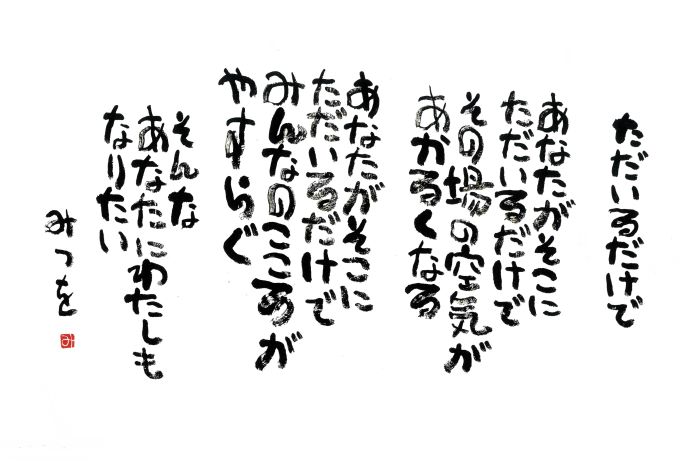 ただいるだけで
あなたがそこに
ただいるだけで
その場の空気が
あかるくなる
あなたがそこに
ただいるだけで
みんなのこころが
やすらぐ
そんな
あなたにわたしも
なりたい
みつを
み